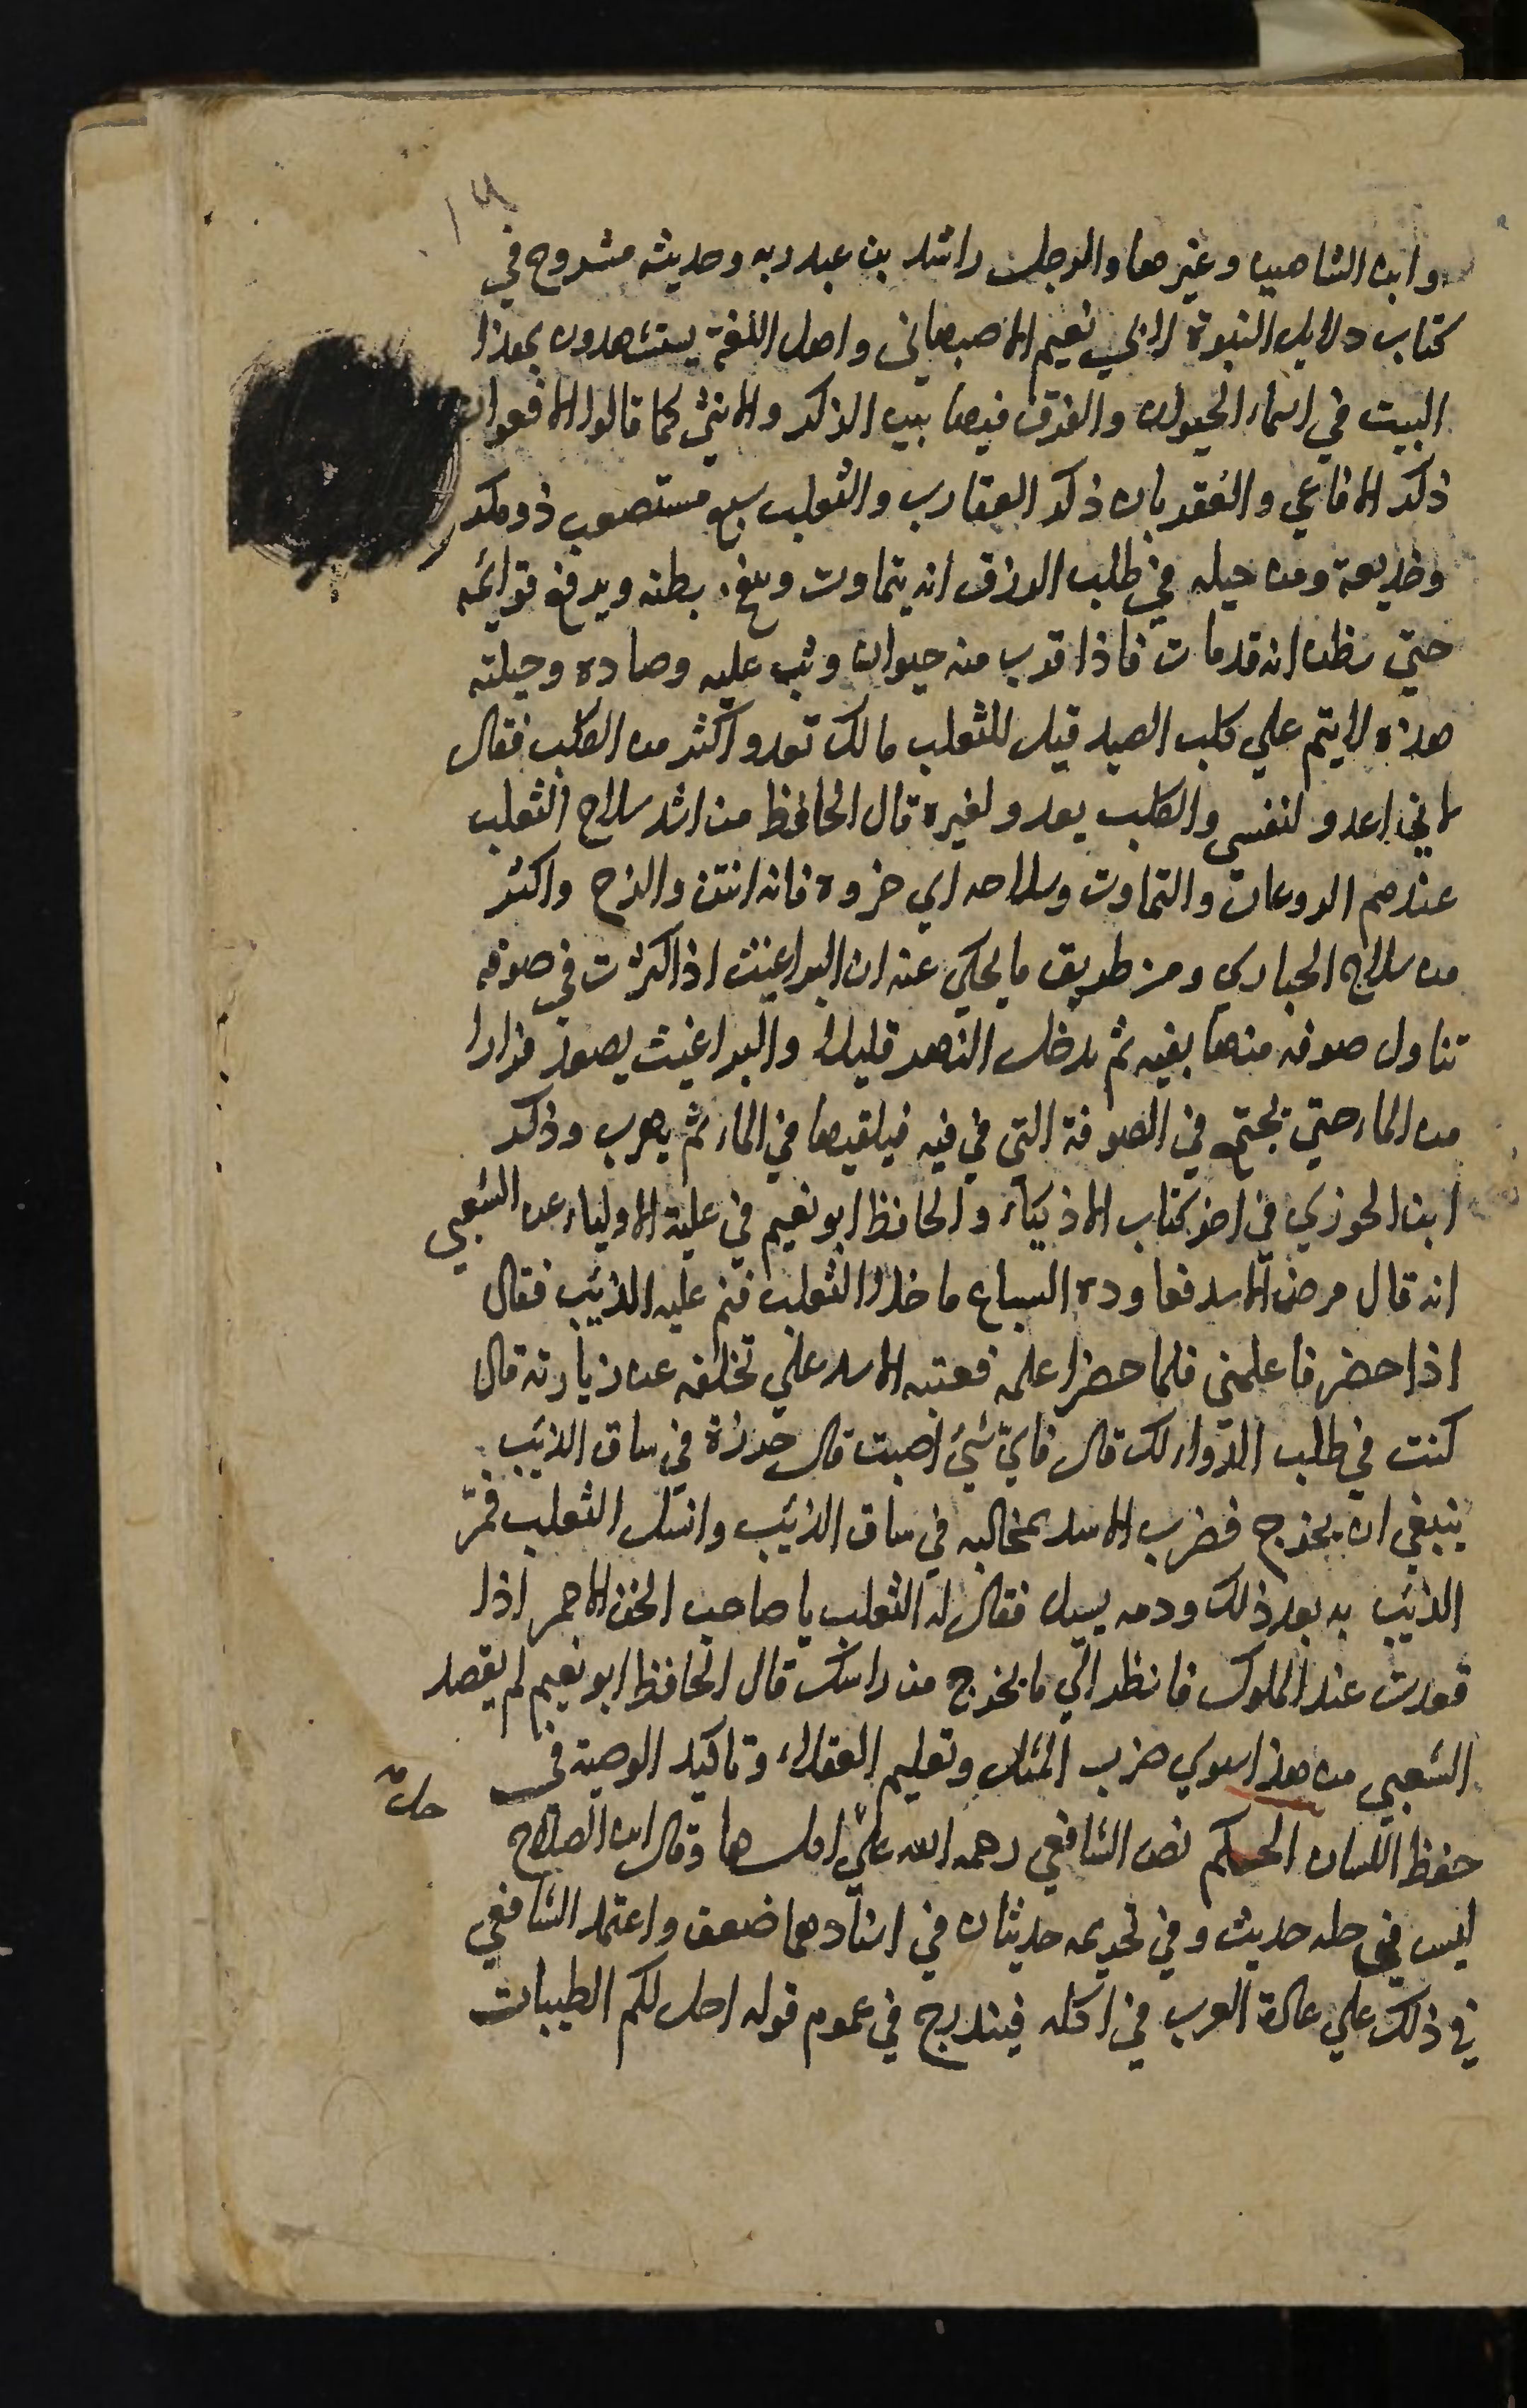 وابن الشاهين وغيرهما والرجل راشد بن عبد ربه وحديثه مشروح في
كتاب دلايل النبوة لابي نعيم الاصبهاني واهل اللغة يستشهدون بهذا
البيت في اسماء الحيوان والفرق فيها بين الذكر والانثى كما قالوا الافعوان
ذكر الافاعي والعقربان ذكر العقارب والثعلب سبع مستصعب ذو مكر
وخديعة ومن حيله في طلب الرزق انه يتماوت وينفخ بطنه ويرفع قوايمه
حتي يظن انه قد مات فاذا قرب منه حيوان وثب عليه وصاده وحيلته
هذه لا يتم علي كلب الصيد قيل للثعلب مالك تعدو اكثر من الكلب فقال
لاني اعدو لنفسي والكلب يعدو لغيره قال الحافظ من اشد سلاح الثعلب
عندهم الروغان والتماوت وسلاحه اي خروه فانه انتن والزج واكثر
من سلاح الحباري ومن طريق ما يحكي عنه ان البراغيث اذا كثرت في صوفه
تناول صوفه منها بفيه ثم يدخل النهر قليلا والبراغيث يصعد فرارا
من الماء حتي تجتمع في الصوفة التي في فيه فيلقيها في الماء ثم يهرب وذكر
ابن الجوزي في اخر كتاب الاذكياء والحافظ ابو نعيم في حلية الاولياء عن الشعبي
انه قال مرض الاسد فعاوده السباع ما خلا الثعلب فنم عليه الذئب فقال
اذا حضر فاعلمني فلما حضر اعلمه فعتبه الاسد علي تخلفه عن زيارته قال
كنت في طلب الدواء لك قال فاي شيء اصبت قال خرزة في ساق الذئب
ينبغي ان يخرج فضرب الاسد بمخالبه في ساق الذئب وانسل الثعلب فمرّ
الذئب به بعد ذلك ودمه يسيل فقال له الثعلب يا صاحب الخف الاحمر اذا
قعدت عند الملوك فانظر الي ما يخرج من راسك قال الحافظ ابو نعيم لم يقصد
الشعبي من هذا سوي ضرب المثل وتعليم العقلاء وتاكيد الوصية في
حفظ اللسان الحكم نص الشافعي رحمه الله علي اكلها وقال ابن الصلاح
ليس في حله حديث وفي تحريمه حديثان في اسنادهما ضعف واعتمد الشافعي
في ذلك علي عادة العرب في اكله فيندرج في عموم قوله احل لكم الطيبات
حل